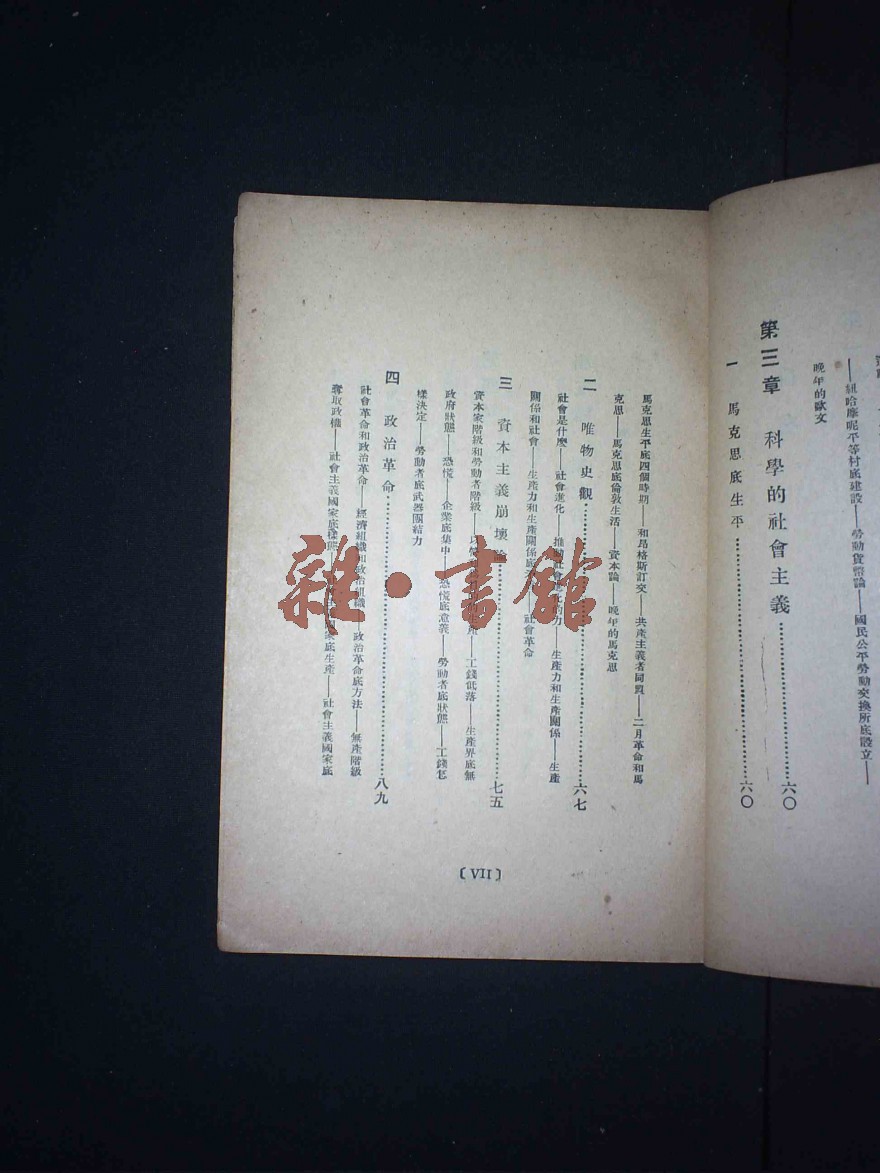 ——紐哈摩呢平等村底建設——勞動貨幣論——國民公平勞動交換所底設立——
晚年的歐文
第三章 科學的社會主義……六〇
一 馬克思底生平……六〇
馬克思生平底四個時期——和昂格斯訂交——共產主義者同盟——二月革命和馬
克思——馬克思底倫敦生活——資本論——晚年的馬克思
二 唯物史觀……六七
社會是什麼——社會進化——推動社會進化的力——生產力和生產關係——生產
關係和社會——生產力和生產關係底——社會革命
三 資本主義崩壞論……七五
資本家階級和勞動者階級——以生產——工錢低落——生產界底無
政府狀態——恐慌——企業底集中——恐慌底意義——勞動者底狀態——工錢怎
樣決定——勞動者底武器團結力
四 政治革命……八九
社會革命和政治革命——經濟組織和政治組織——政治革命底方法——無產階級
奪取政權——社會主義國家底樣態——家底生產——社會主義國家底
〔VII〕
雜·書館